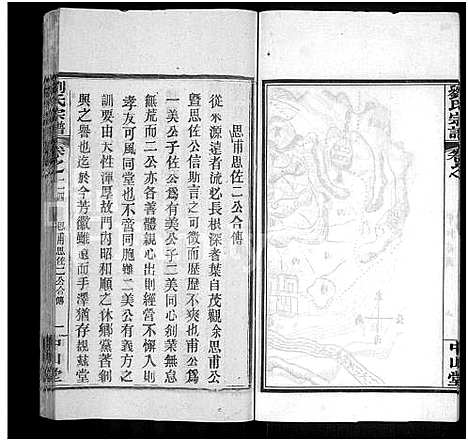 劉氏宗譜
卷之
中山堂
思甫思佐二公合傳
從來源遠者流必長根深者葉自茂觀余思甫公
暨思佐公信斯言之可徵而歷歷不爽也甫公為
一美公子佐公為有美公子二美同心創業無怠
無荒而二公亦各善體親心出則經營不憚入則
孝友可風同堂也不啻同胞雖二美公有義方之
訓要由天性渾厚故門內昭和順之休鄉黨著創
興之譽也迄於今芳徽雖遠而手澤猶存規茲堂
劉氏宗譜
卷之
思甫思佐二公合傳
一
中山堂